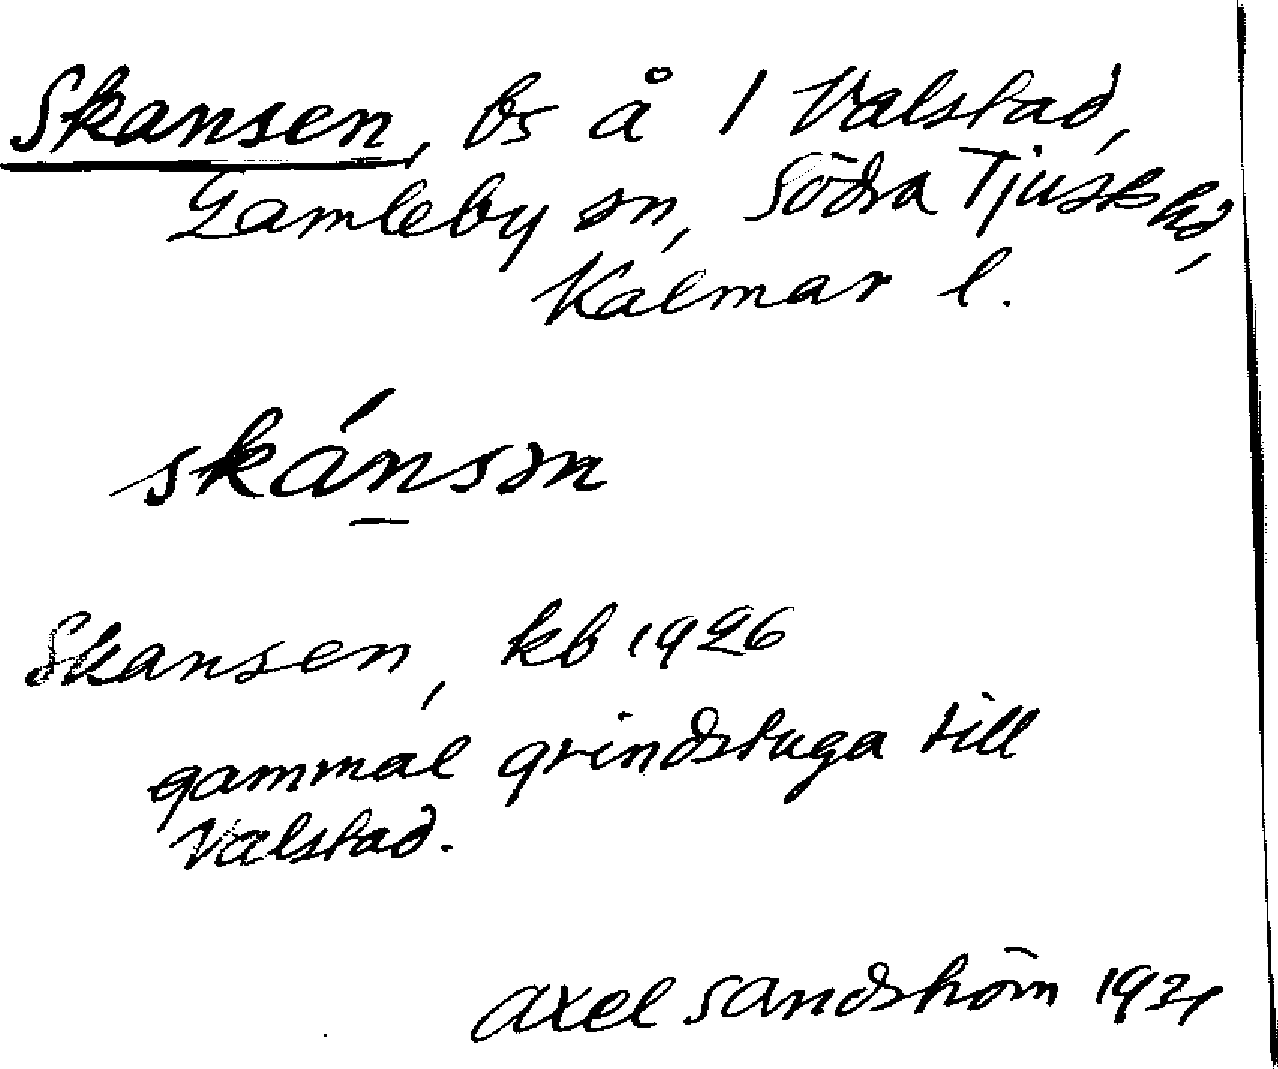 Skansen, bs å 1 Valstad,
Gamleby sn, Södra Tjusts hd,
Kalmar l.
skánsən
Skansen, kb 1926
gammal grindstuga till
Valstad.
Axel Sandström